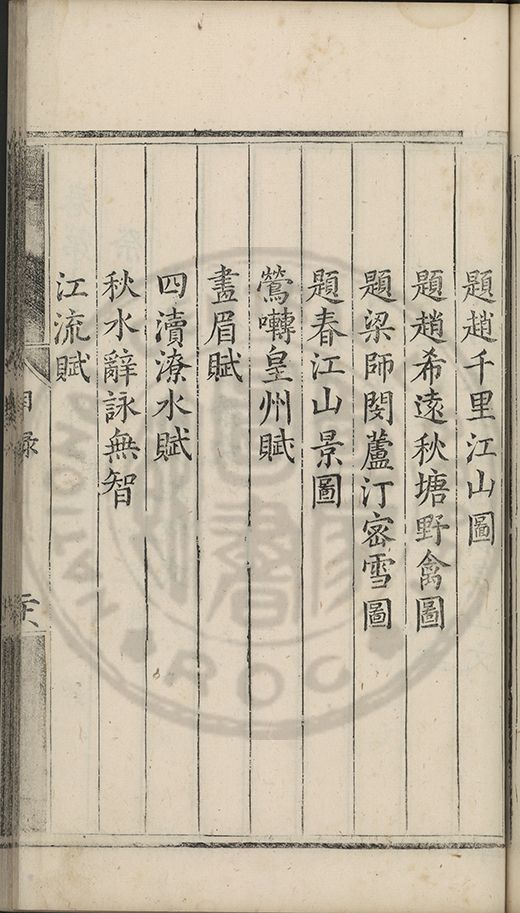 題趙千里江山圖
題趙希遠秋塘野禽圖
題梁師閔蘆汀密雪圖
題春江山景圖
鶯囀皇州賦
畫眉賦
四瀆潦水賦
秋水辭詠無智
江流賦
目录